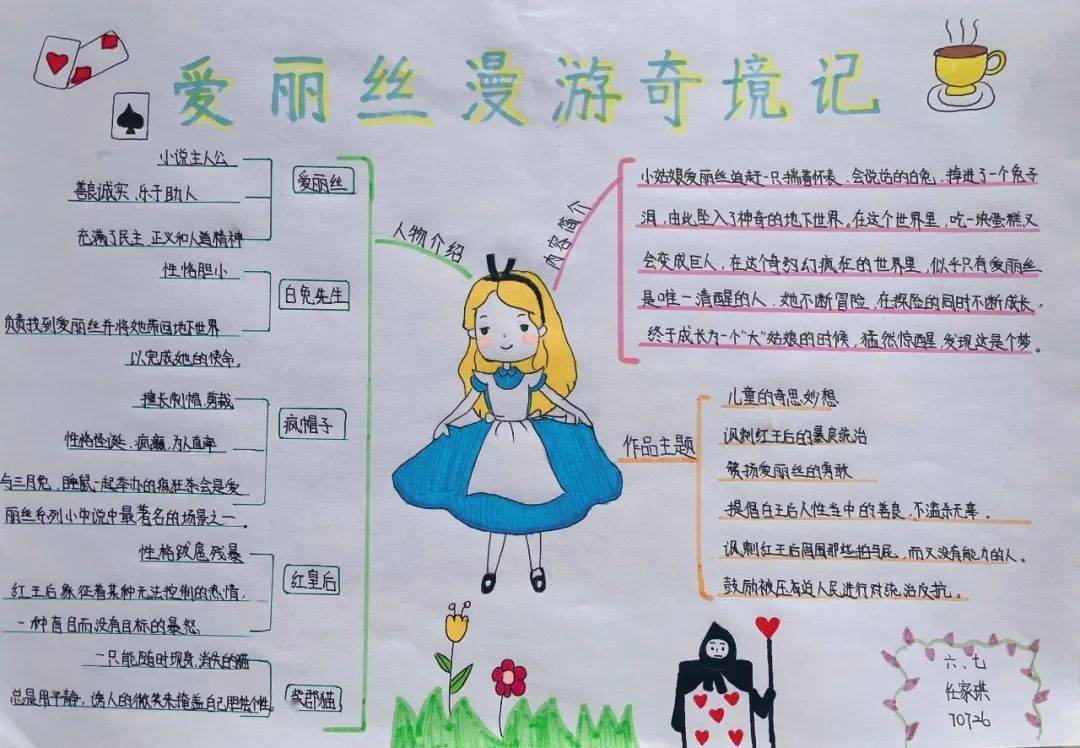 爱丽丝漫游奇境记
人物介绍
爱丽丝
小说主人公
善良诚实、乐于助人
充满了民主、正义和人道精神
白兔先生
性格胆小
负责找到爱丽丝并将她带回地下世界
以完成她的使命。
疯帽子
擅长制帽、剪裁
性格怪诞、疯癫，为人直率
与三月兔，睡鼠一起举办的疯狂茶会是爱
丽丝系列小说中最著名的场景之一。
红皇后
性格跋扈残暴
红王后象征着某种无法控制的热情，
一种盲目而没有目标的暴怒
柴郡猫
一只能随时现身、消失的猫
总是用平静，诱人的微笑来掩盖自己胆怯个性。
内容简介
小姑娘爱丽丝追赶一只揣着怀表、会说话的白兔，掉进了一个兔子
洞，由此坠入了神奇的地下世界。在这个世界里，吃一块蛋糕又
会变成巨人，在这个奇幻疯狂的世界里，似乎只有爱丽丝
是唯一清醒的人，她不断冒险，在探险的同时不断成长，
终于成长为一个"大"姑娘的时候，猛然惊醒，发现这是个梦。
作品主题
儿童的奇思妙想
讽刺红王后的暴戾统治
赞扬爱丽丝的勇敢
提倡白王后人性当中的善良，不滥杀无辜。
讽刺红王后周围那些拍马屁，而又没有能力的人。
鼓励被压迫人民进行对统治反抗。
六、七
任家琪
70726